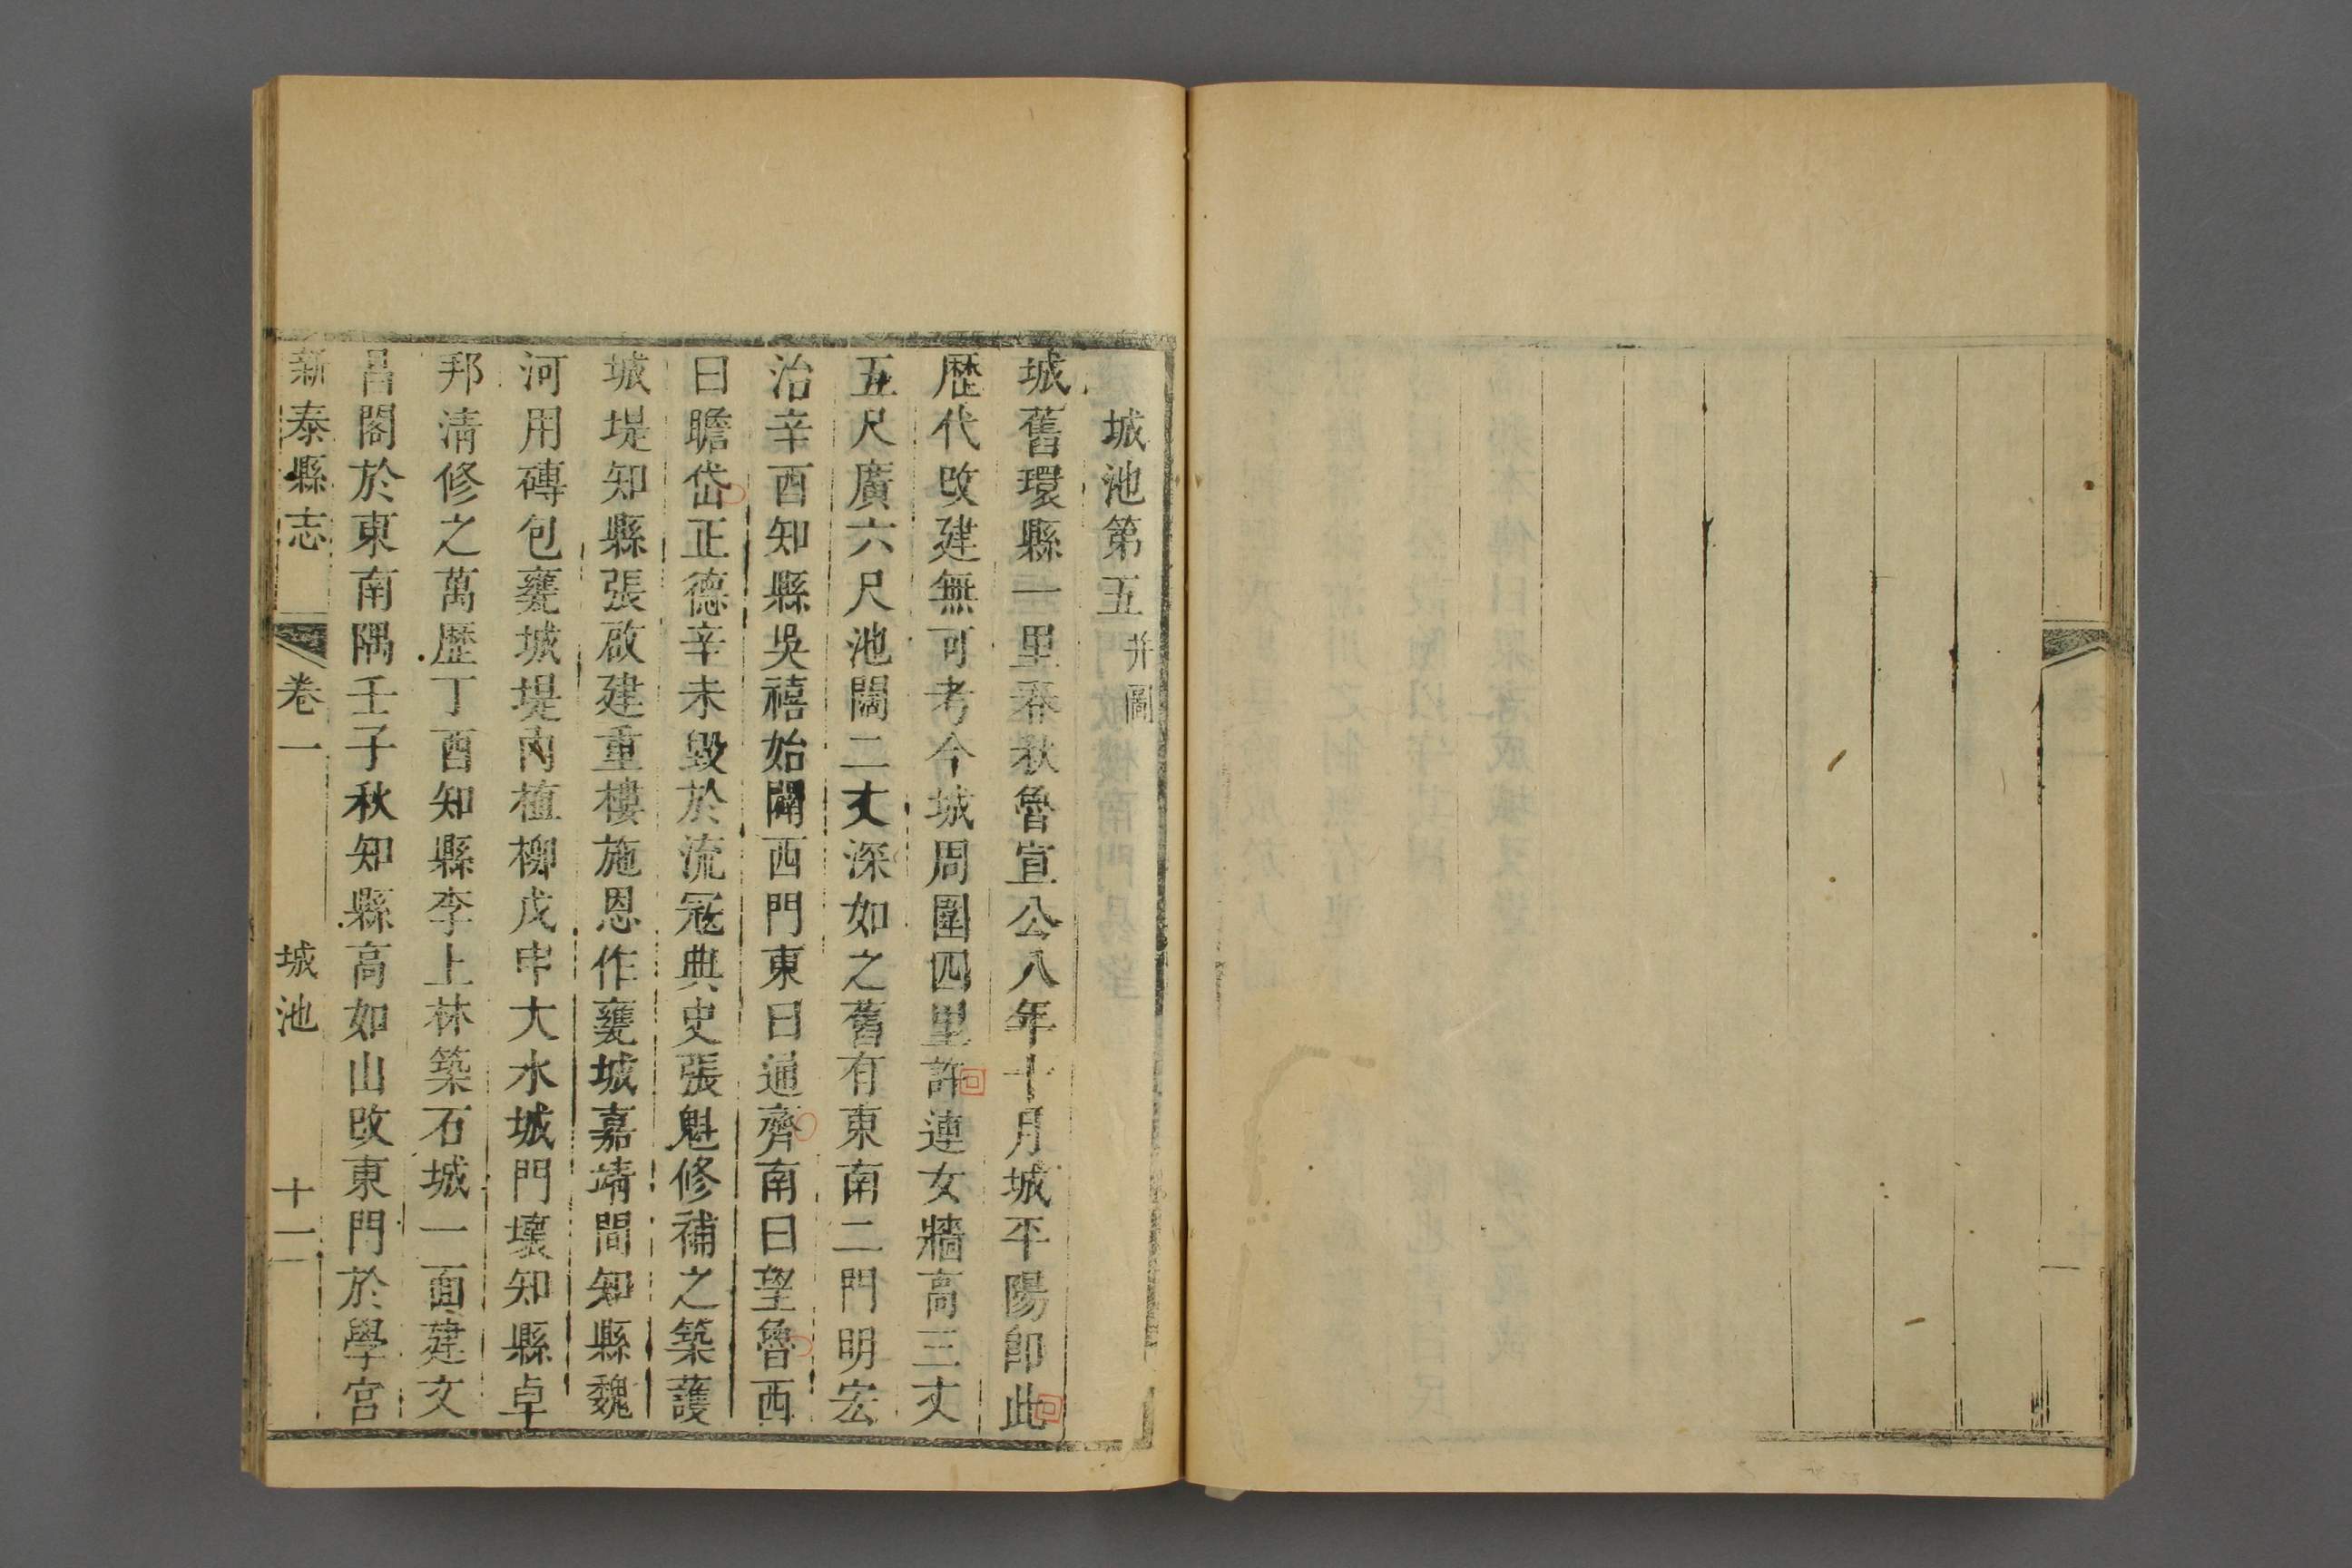 城池第五并圖
城舊環縣一里春秋魯宣公八年十月城平陽卽此
歷代改建無可考今城周圍四里許連女牆高三丈
五尺廣六尺池闊二丈深如之舊有東南二門明宏
治辛酉知縣吳禧始闢西門東曰通齊南曰望魯西
曰瞻岱正德辛未毀於流寇典史張魁修補之築護
城堤知縣張啟建重樓施恩作甕城嘉靖間知縣魏
河用磚包甕城堤內植柳戊申大水城門壞知縣卓
邦清修之萬歷丁酉知縣李上林築石城一面建文
昌閣於東南隅壬子秋知縣高如山改東門於學宮
新泰縣志 卷一 城池 十一